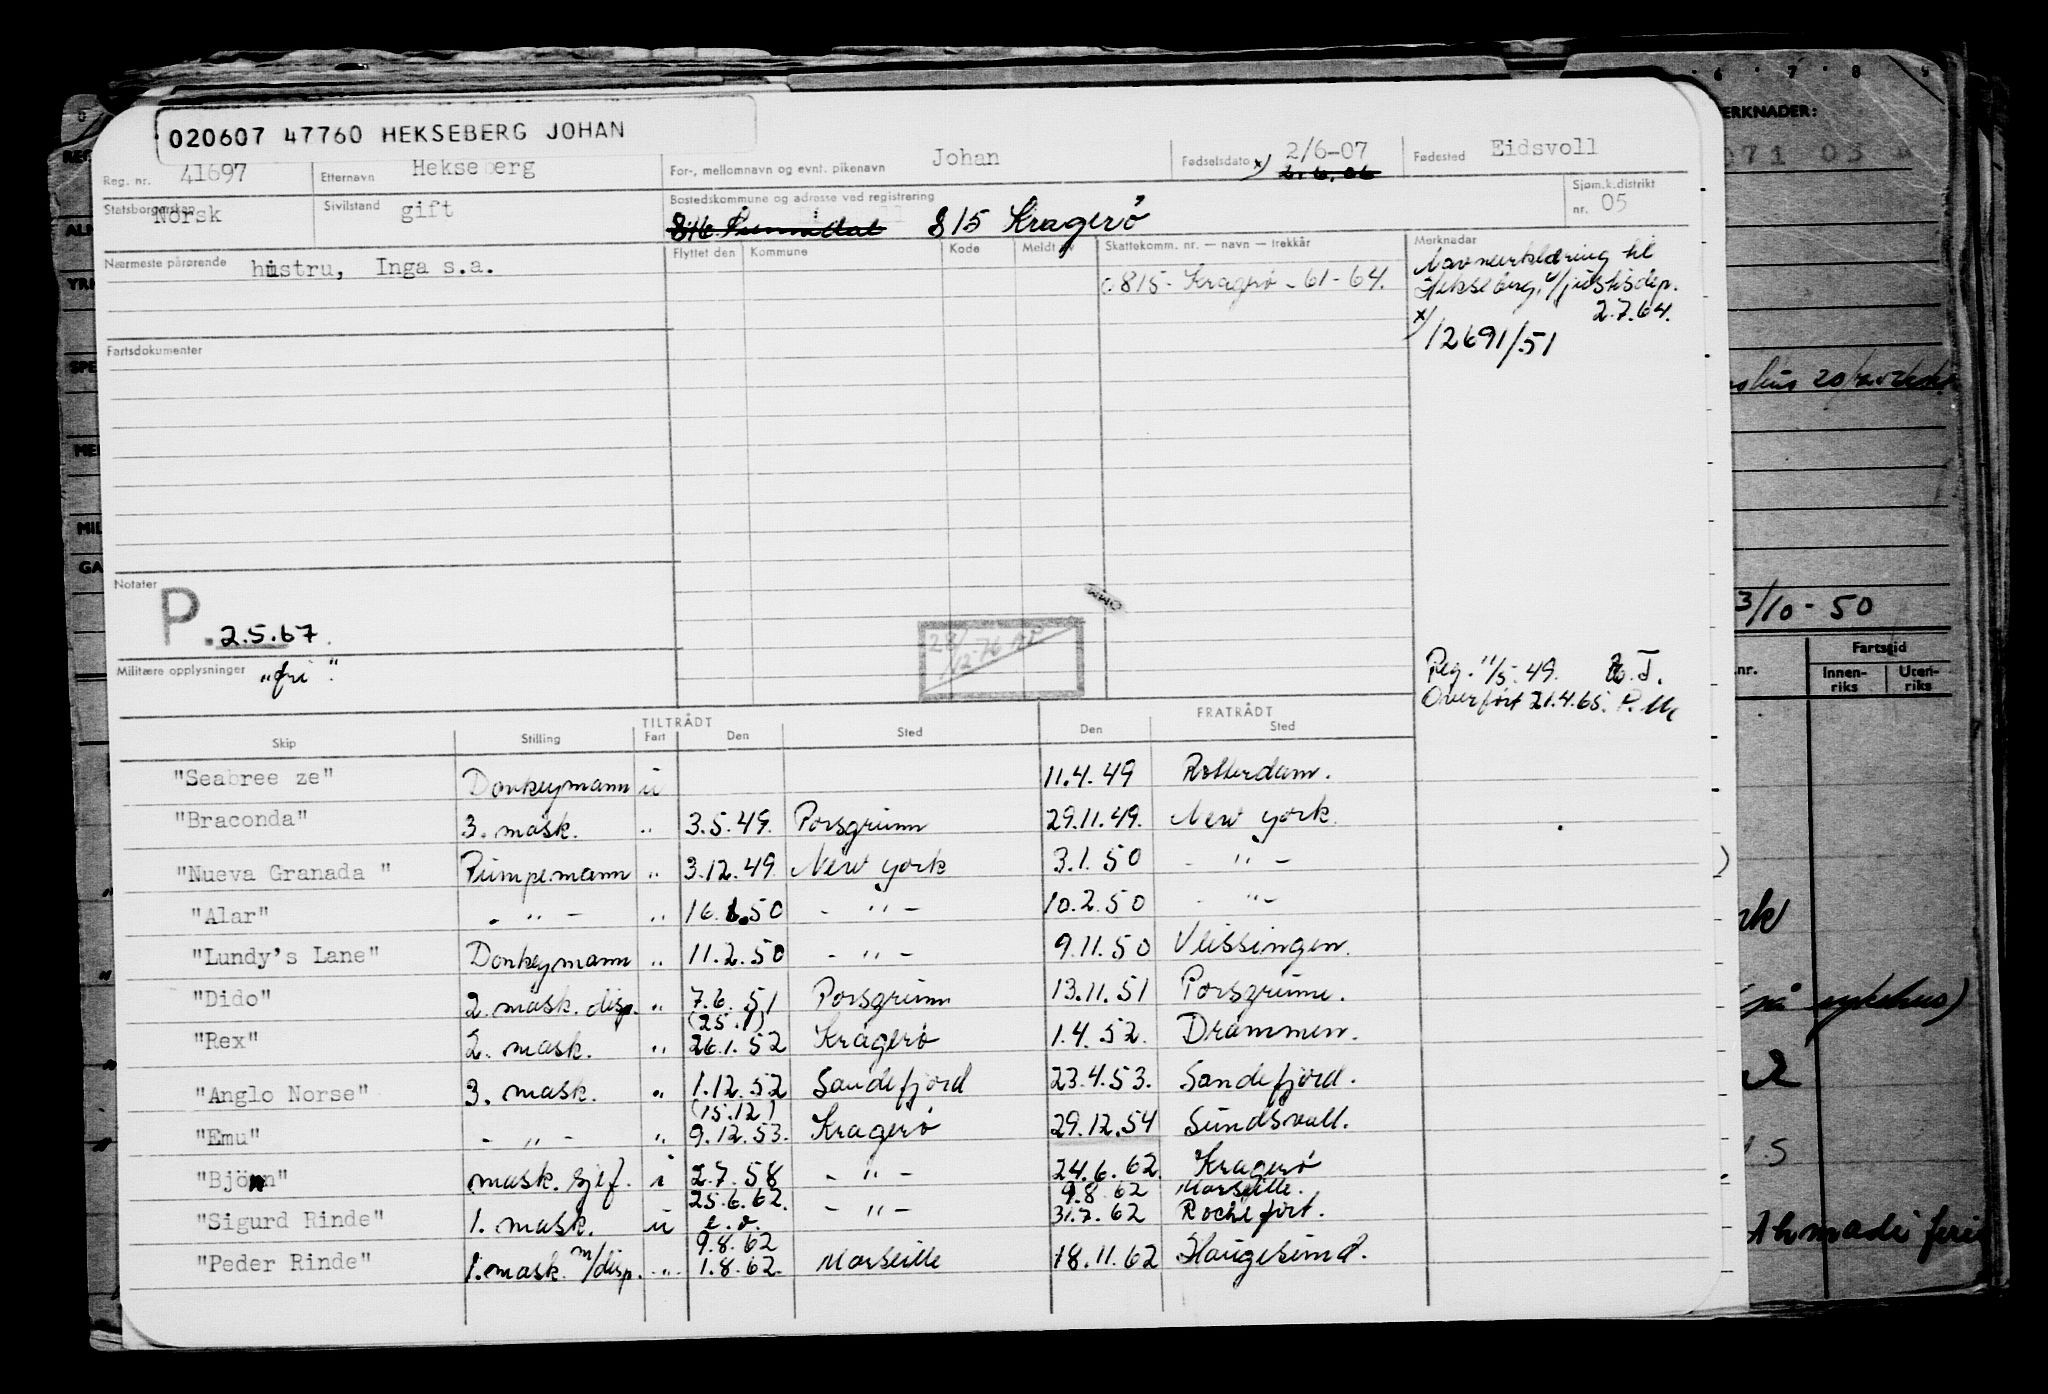 020607 47760 HEKSEBERG JOHAN
Reg. nr. 41697 Etternavn Hekseberg For-, mellomnavn og evnt. pikenavn Johan Fødselsdato x) 2/6-07 Fødested Eidsvoll
2.6.06
Statsborgerskap Norsk Sivilstand gift Bostedskommune og adresse ved registrering 815 Kragerø Sjøm.k.distrikt nr. 05
Nærmeste pårørende hustru, Inga s.a. Flyttet den Kommune Kode Meldt av Skattekomm. nr. — navn — trekkår Merknader
0815 - Kragerø - 61 - 64.
Navneerklæring til
Hekseberg, justisdep.
2.7.64.
x) 12691/51
Fartsdokumenter
Notater
P. 2.5.67.
28/12-76
Militære opplysninger "fri".
Reg. 11/5-49.
Overført 21.4.65.
TILTRÅDT FRATRÅDT
Skip Stilling Fart Den Sted Den Sted
"Seabree ze" Donkeymann u 11.4.49 Rotterdam.
"Braconda" 3. mask. " 3.5.49. Porsgrunn 29.11.49. New York.
"Nueva Granada " Pumpemann " 3.12.49 New York 3.1.50 - " -
"Alar" - " - " 16.1.50 - " - 10.2.50 - " -
"Lundy's Lane" Donkeymann " 11.2.50 - " - 9.11.50 Vlissingen.
"Dido" 2. mask. disp. " 7.6.51 Porsgrunn 13.11.51 Porsgrunn.
(25.1)
"Rex" 2. mask. " 26.1.52 Kragerø 1.4.52. Drammen.
"Anglo Norse" 3. mask. " 1.12.52 Sandefjord 23.4.53. Sandefjord.
(15.12)
"Emu" - " - " 9.12.53. Kragerø 29.12.54 Sundsvall.
"Björn" mask. sjef. i 2.7.58 - " - 24.6.62. Kragerø
25.6.62. 9.8.62 Marseille.
"Sigurd Rinde" 1. mask. u e.o. - " - 31.7.62 Rochefort.
9.8.62
"Peder Rinde" 1. mask. m/disp. " 1.8.62. Marseille 18.11.62 Haugesund.
6 7 8 9
ERKNADER:
071 03
3/10-50
Fartstid
nr. Innen-riks Uten-riks
(på sykehus)